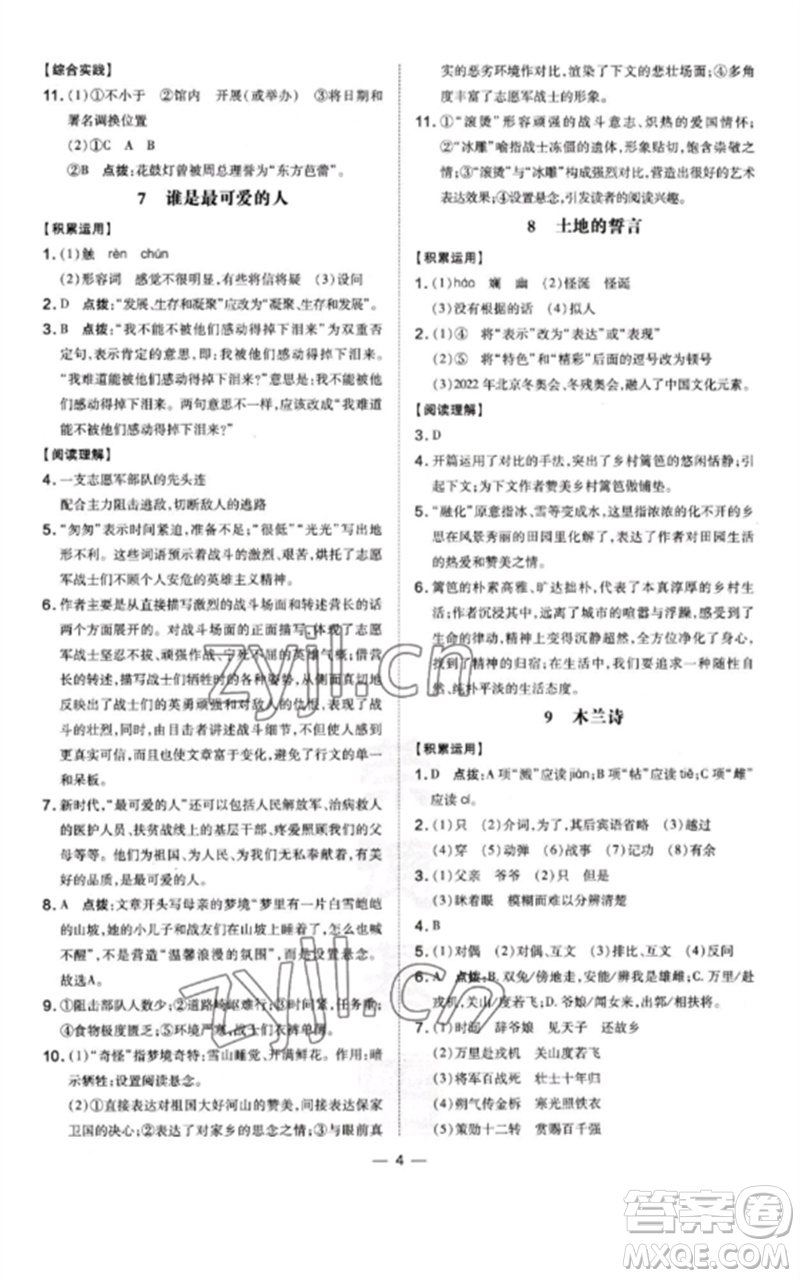 【综合实践】
11. (1)①不小于　②馆内　开展(或举办)　③将日期和
署名调换位置
(2)①C　A　B
②B　点拨：花鼓灯曾被周总理誉为“东方芭蕾”。
7　谁是最可爱的人
【积累运用】
1. (1)触　rèn　chún
(2)形容词　感觉不很明显,有些信将疑　(3)设问
2. D　点拨：“发展、生存和凝聚”应改为“凝聚、生存和发展”。
3. B　点拨：“我不能不被他们感动得掉下泪来”为双重否
定句,表示肯定的意思,即：我被他们感动得掉下泪来。
“我难道能被他们感动得掉下泪来？”意思是：我不能被
他们感动得掉下泪来。两句意思不一样,应该改成“我难道
能不被他们感动得掉下泪来？”
【阅读理解】
4. 一支志愿军部队的先头连
配合主力阻击逃敌,切断敌人的逃路
5. “匆匆”表示时间紧迫,准备不足；“很低”“光光”写出地
形不利。这些词语写战斗的激烈、艰苦,烘托了志愿
军战士们不顾个人安危的英雄主义精神。
6. 作者主要是从直接描写激烈的战斗场面和转述营长的话
两个方面展开的。对战斗场面的正面描写,体现了志愿
军战士坚忍不拔、顽强作战、宁死不屈的英雄气概；借营
长之口描述战士们牺牲时的各种姿势,更真切、更直观地
反映出了战士的英勇顽强和对敌人的仇恨,表现了战
斗的壮烈,同时,由目击者讲述战斗细节,增强了故事的
真实性,也使文章富于变化,避免了行文的单一
和呆板。
7. 新时代,“最可爱的人”可以是人民解放军、治病救人
的医护人员、扶贫战线上的基层干部、疼爱照顾我们的父
母等等。他们为祖国、为人民、为家庭无私奉献着,有美
好的品格,值得我们学习和尊敬。
8. A　点拨：文章开头写母亲的梦境“梦里有一片白雪皑皑
的山坡,她的小儿子和战友们在山坡上睡着了,怎么也喊
不醒”,不是营造“温馨浪漫的氛围”,其实暗示了牺牲。
故选A。
9. ①阻击部队人数少；②道路崎岖难行；③时间紧,任务重；
④食物极度匮乏；⑤环境严寒,战士们衣裤单薄。
10. (1)“奇怪”指梦境奇特：雪山睡觉、开满鲜花。作用：暗
示牺牲；设置阅读悬念。
(2)①直接表达对祖国大好河山的赞美,间接表达保家
卫国的决心；②表达了对家乡的思念之情；③与眼前真
实的恶劣环境作对比,渲染了下文的悲壮场面；④多角
度丰富了志愿军战士的形象。
11. ①“滚烫”形容顽强的战斗意志、炽热的爱国情怀；
②“冰雕”喻指战士冻僵的遗体,形象贴切,饱含崇敬之
情；③“滚烫”与“冰雕”构成强烈对比,营造出很好的艺术
表达效果；④设置悬念,引发读者的阅读兴趣。
8　土地的誓言
【积累运用】
1. (1)háo　斓　幽　(2)怪诞　怪诞
(3)没有根据的话　(4)拟人
2. (1)④　将“表示”改为“表达”或“表现”
(2)⑤　将“特色”和“精彩”后面的逗号改为顿号
(3)2022年北京冬奥会、冬残奥会,融入了中国文化元素。
【阅读理解】
3. D
4. 开篇运用了对比的手法,突出了乡村篱笆的悠闲恬静；引
出下文；为下文作者赞美乡村篱笆做铺垫。
5. “融化”原意是指冰、雪等变成水,这里指浓浓的化不开的乡
思在风景秀丽的田园里化解开,表达了作者对田园生活
的热爱和赞美之情。
6. 篱笆的朴素高雅、旷达拙朴,代表了本真淳厚的乡村生
活。作者沉浸其中,远离了城市的喧嚣与浮躁,感受到了
生命的律动,精神上得到了沉静超然。作者爱乡村篱笆,
找到了精神的归宿；在物欲横流的社会里,保持一份本
真、纯朴平淡的生活态度。
9　木兰诗
【积累运用】
1. D　点拨：A项“溅”应读jiān；B项“帖”应读tiě；C项“雌”
应读cí。
2. (1)只　(2)介词,为了,其后宾语省略　(3)越过
(4)穿　(5)动弹　(6)战事　(7)记功　(8)有余
3. (1)父亲　爷爷　只　但是
(3)眯着眼　模糊而难以分辨清楚
4. B
5. (1)对偶　(2)对偶、互文　(3)排比、互文　(4)反问
6. A　点拨：B. 双兔/傍地走,安能/辨我是雄雌；C. 万里/赴
戎机,关山/度若飞；D. 爷娘/闻女来,出郭/相扶将。
7. (1)问女　辞爷娘　见天子　还故乡
(2)万里赴戎机　关山度若飞
(3)将军百战死　壮士十年归
(4)朔气传金柝　寒光照铁衣
(5)策勋十二转　赏赐百千强
— 4 —
zyjl.cn
zyjl.cn
答案卷
MXQE.COM